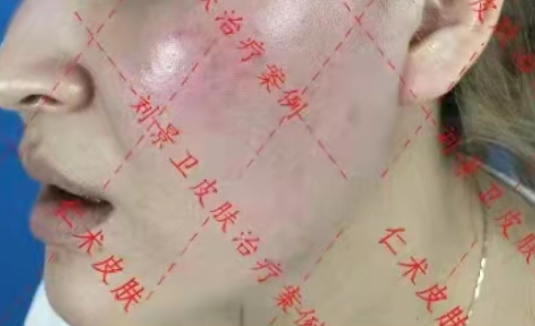 肤治疗案例
刘景卫皮肤治疗案例
仁术皮肤
仁术皮肤
刘景卫皮肤